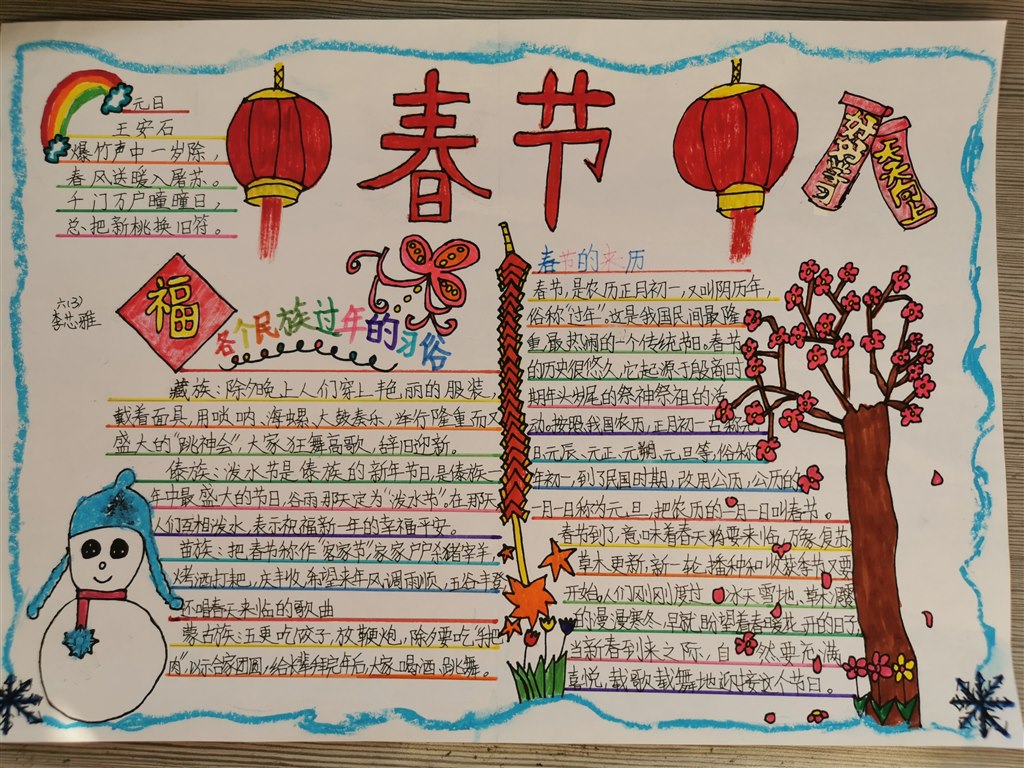 春节
好好学习
天天向上
元日
王安石
爆竹声中一岁除，
春风送暖入屠苏。
千门万户曈曈日，
总把新桃换旧符。
福
六(3)
李芯雅
各个民族过年的习俗
藏族：除夕晚上人们穿上艳丽的服装，
戴着面具，用唢呐、海螺、大鼓奏乐，举行隆重而又
盛大的“跳神会”，大家狂舞高歌，辞旧迎新。
傣族：泼水节是傣族的新年节日，是傣族一
年中最盛大的节日，谷雨那天定为“泼水节”。在那天
人们互相泼水，表示祝福新一年的幸福平安。
苗族：把春节称作“客家节”家家户户杀猪宰羊，
烤酒打粑，庆丰收，希望来年风调雨顺，五谷丰登
还唱春天来临的歌曲
蒙古族：五更吃饺子，放鞭炮，除夕要吃“手把
肉”，以示合家团圆，给水辈拜完年后，大家喝酒、跳舞。
春节的来历
春节，是农历正月初一，又叫阴历年，
俗称“过年”.这是我国民间最隆
重最热闹的一个传统节日。春节
的历史很悠久，它起源于殷商时
期年头岁尾的祭神祭祖的活
动，按照我国农历，正月初一古称元
日、元辰、元正、元朔、元旦等，俗称
年初一，到了民国时期，改用公历，公历的
一月一日称为元旦，把农历的一月一日叫春节。
春节到了，意味着春天将要来临，万象复苏
草木更新，新一轮播种和收获季节又要
开始，人们刚刚度过冰天雪地，草木凋零
的漫漫寒冬，早就盼望着春暖花开的日子
当新春到来之际，自然要充满
喜悦，载歌载舞地迎接这个节日。